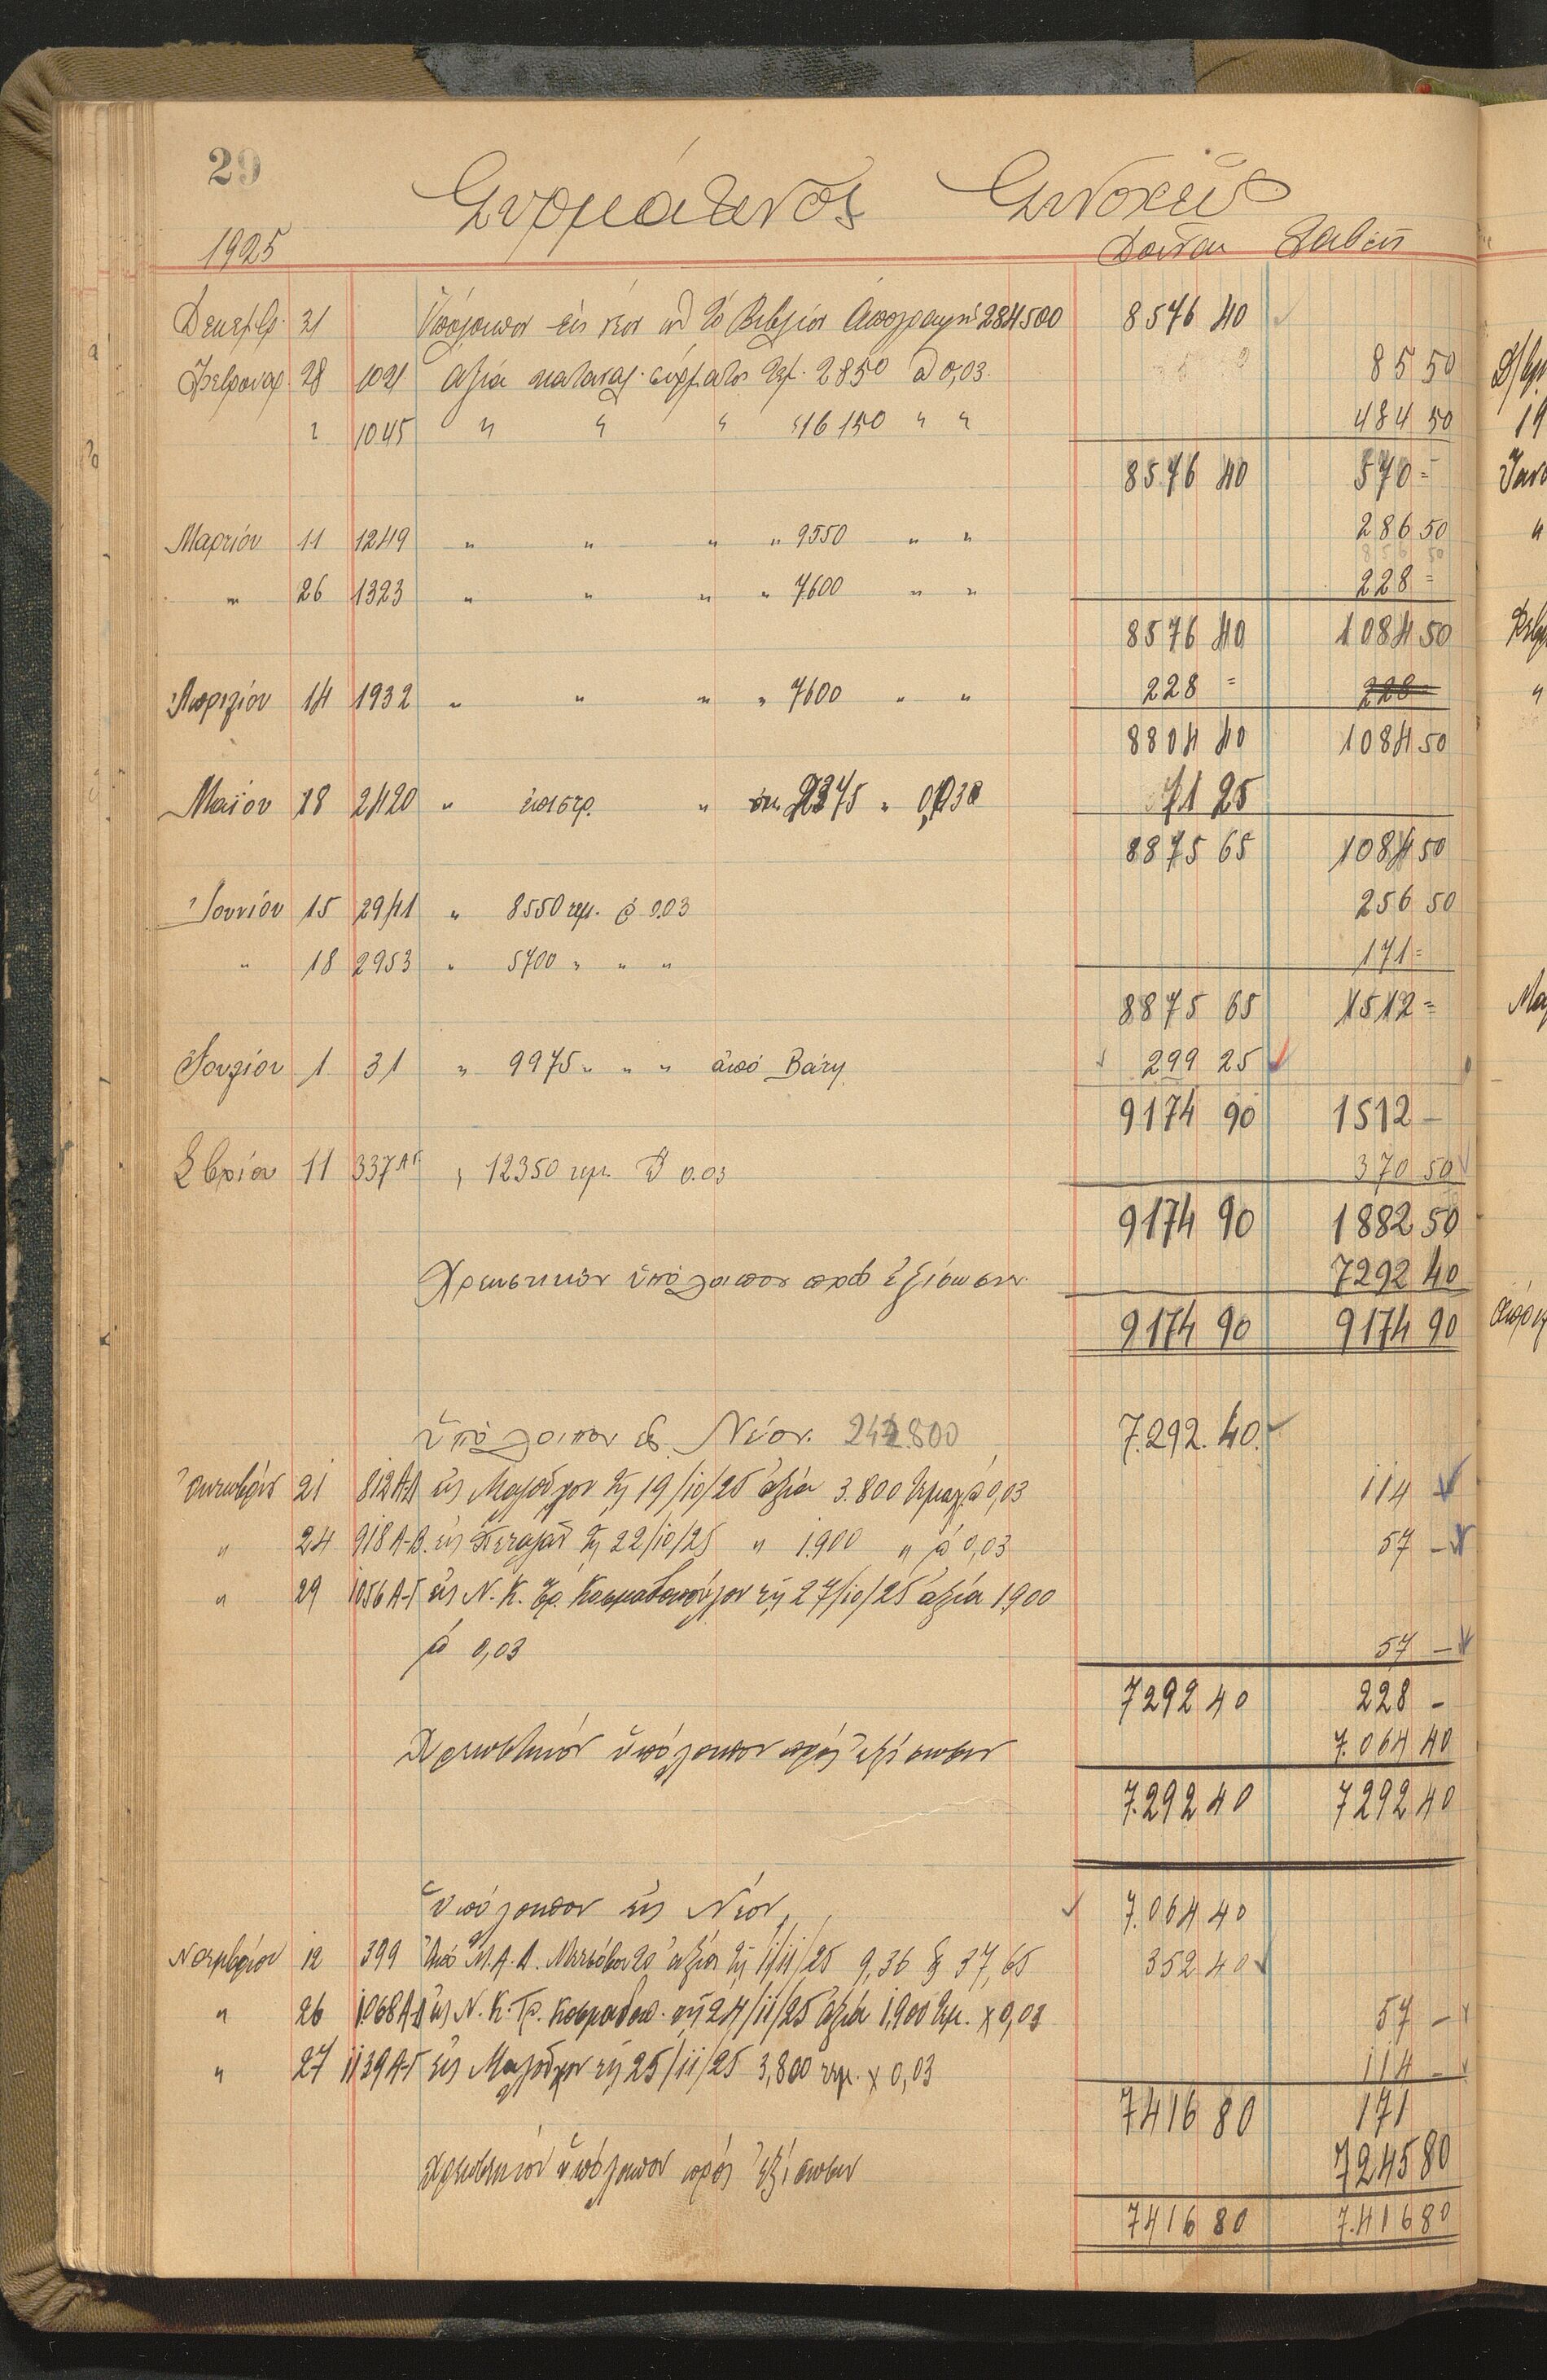 29
Συρμάτινος Συνοχεύς
1925 Δοῦναι Λαβεῖν
Δεκεμβρ. 31 Ὑπόλοιπον εἰς νέον ἀπὸ τὸ Βιβλίον Ἀπογραφῆς 284500 8576 40
Φεβρουαρ. 28 1021 Ἀξία καταναλ. σύρματος τεμ. 2850 ἀ 0,03 85 50
" 1045 " " " " 16150 " " 484 50
8576 40 570 =
Μαρτίου 11 1249 " " " " 9550 " " 286 50
856 50
" 26 1323 " " " " 7600 " " 228 =
8576 40 1084 50
Ἀπριλίου 14 1932 " " " " 7600 " " 228 = 228
8804 40 1084 50
Μαΐου 18 2420 " ἐπιστρ. " 2375 " 0,030 71 25
8875 65 1084 50
Ἰουνίου 15 2941 " 8550 τεμ. @ 0.03 256 50
" 18 2953 " 5700 " " " 171 =
8875 65 1512 =
Ἰουλίου 1 31 " 9975 " " " ἀπό Βάτη 299 25
9174 90 1512 —
Σβρίου 11 337 ΑΓ " 12350 τεμ. @ 0.03 370 50
9174 90 1882 50
Χρεωστικὸν ὑπόλοιπον πρὸς ἐξίσωσιν 7292 40
9174 90 9174 90
Ὑπόλοιπον εἰς Νέον. 242.800 7.292.40
Ὀκτωβρίου 21 812 Α-Δ εἰς τῇ 19/10/25 ἀξία 3.800 ἀ 0,03 114
" 24 918 Α-Β. εἰς τῇ 22/10/25 " 1.900 " ἀ 0,03 57 —
" 29 1056 Α-Γ εἰς Ν. Κ. τῇ 27/10/25 ἀξία 1900
ἀ 0,03 57 —
7292 40 228 —
Χρεωστικόν ὑπόλοιπον πρός ἐξίσωσιν 7.064 40
7.292 40 7292 40
Ὑπόλοιπον εἰς Νέον 7.064 40
Νοεμβρίου 12 399 Ἀπό ἀξία τῇ 11/11/25 9,36 37,65 352 40
" 26 1068 Α-Δ εἰς Ν. Κ. τῇ 24/11/25 ἀξία 1,900 τεμ. Χ 0,03 57 —
" 27 1139 Α-Γ εἰς τῇ 25/11/25 3,800 τεμ. Χ 0,03 114 —
7416 80 171
Χρεωστικόν ὑπόλοιπον πρός ἐξίσωσιν 7245 80
7416 80 7.416 80